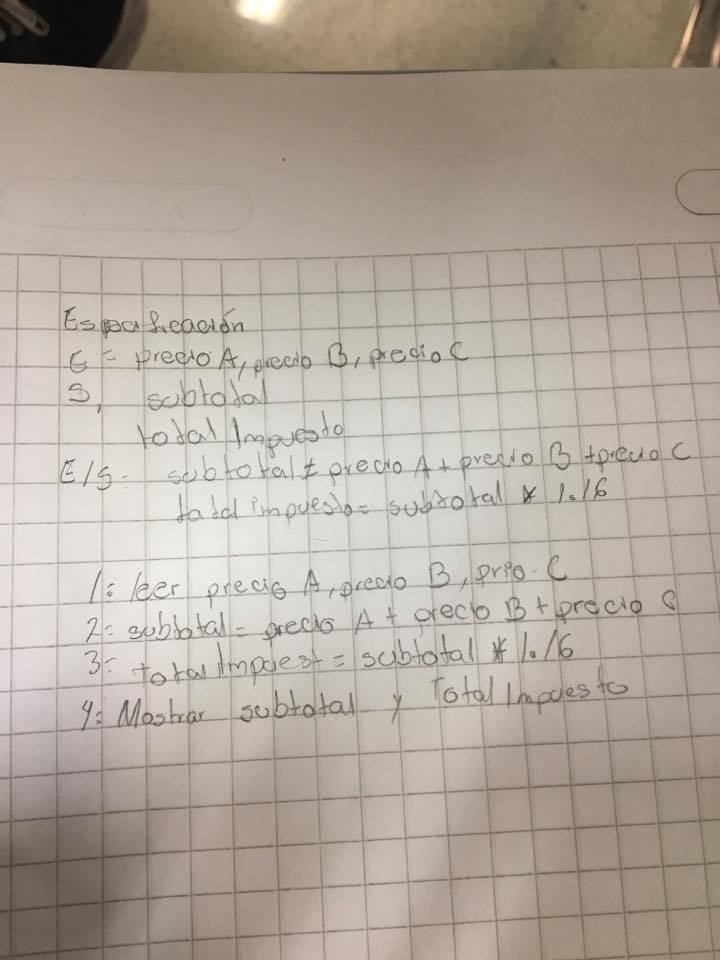 Especificación
E = precio A, precio B, precio C
S, subtotal
total Impuesto
E/S: subtotal = precio A + precio B + precio C
total impuesto = subtotal * 1.16
1: leer precio A, precio B, prio C
2: subtotal = precio A + precio B + precio C
3: total Impuest = subtotal * 1.16
4: Mostrar subtotal y Total Impuesto